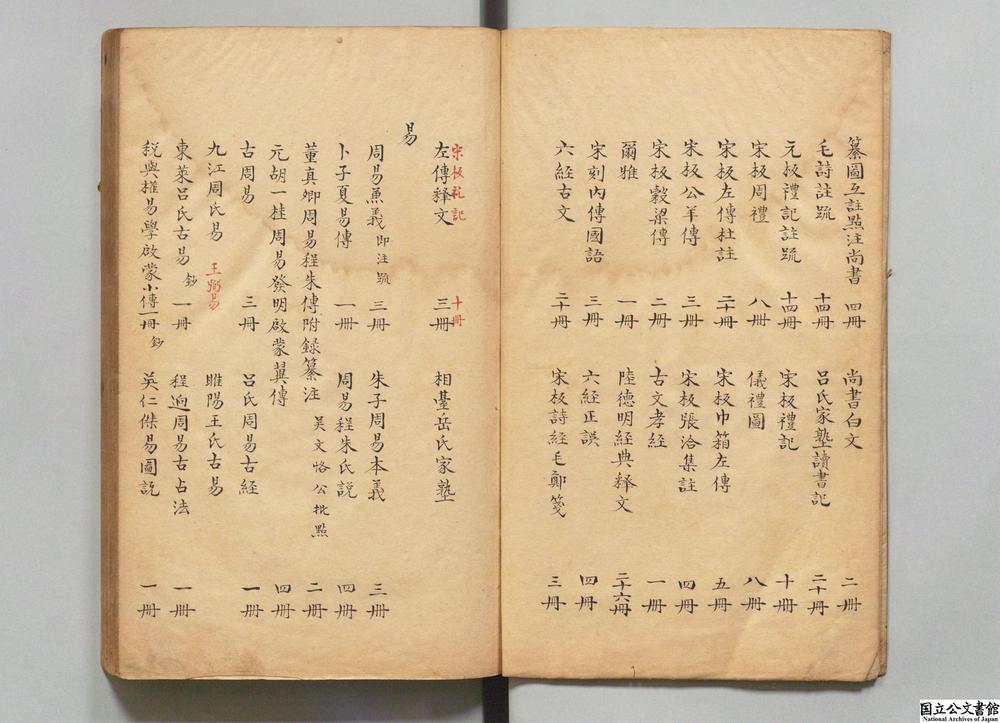 纂圖互註點注尚書 四冊 尚書白文 二冊
毛詩註䟽 十四冊 呂氏家塾讀書記 二十冊
元板禮記註䟽 十四冊 宋板禮記 十冊
宋板周禮 八冊 儀禮圖 八冊
宋板左傳杜註 二十冊 宋板巾箱左傳 五冊
宋板公羊傳 三冊 宋板張洽集註 四冊
宋板穀梁傳 二冊 古文孝經 一冊
爾雅 一冊 陸德明經典釋文 二十六冊
宋刻內傳國語 三冊 六經正誤 四冊
六經古文 二十冊 宋板詩經毛鄭箋 三冊
宋板礼記 十冊
左傳釋文 三冊 相臺岳氏家塾
易
周易兼義 即注䟽 三冊 朱子周易本義 三冊
卜子夏易傳 一冊 周易程朱氏説 四冊
董真卿周易程朱傳附録纂注 吴文恪公批點 二冊
元胡一桂周易發明啟蒙翼傳 四冊
古周易 三冊 呂氏周易古經 一冊
九江周氏易 王弼易 睢陽王氏古易
東萊呂氏古易 鈔 一冊 程迥周易古占法 一冊
税與權易學啟蒙小傳一冊 鈔 吴仁傑易圖説 一冊
国立公文書館
National Archives of Japan